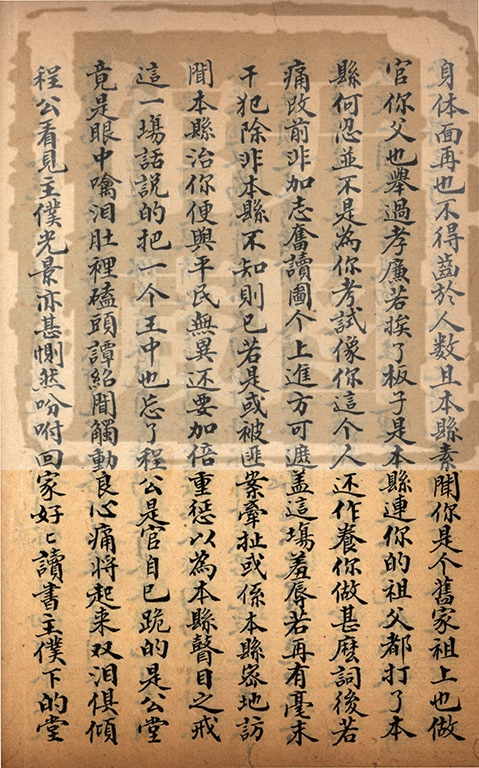 身体面再也不得齒於人数且本縣素聞你是个舊家祖上也做
官你父也舉過孝廉若挨了板子是本縣連你的祖父都打了本
縣何忍並不是為你考試像你這个人还作養你做甚麽詞後若
痛改前非加志奮讀圖个上進方可遮盖這塲羞辱若再有毫末
干犯除非本縣不知則已若是或被匪案牽扯或係本縣宻地訪
聞本縣治你便與平民無異还要加倍重惩以為本縣瞽目之戒
這一塲話説的把一个王中也忘了程公是官自己跪的是公堂
竟是眼中噙泪肚裡磕頭譚紹聞觸動良心痛將起来双泪俱傾
程公看見主僕光景亦甚惻然吩咐回家好〻讀書主僕下的堂